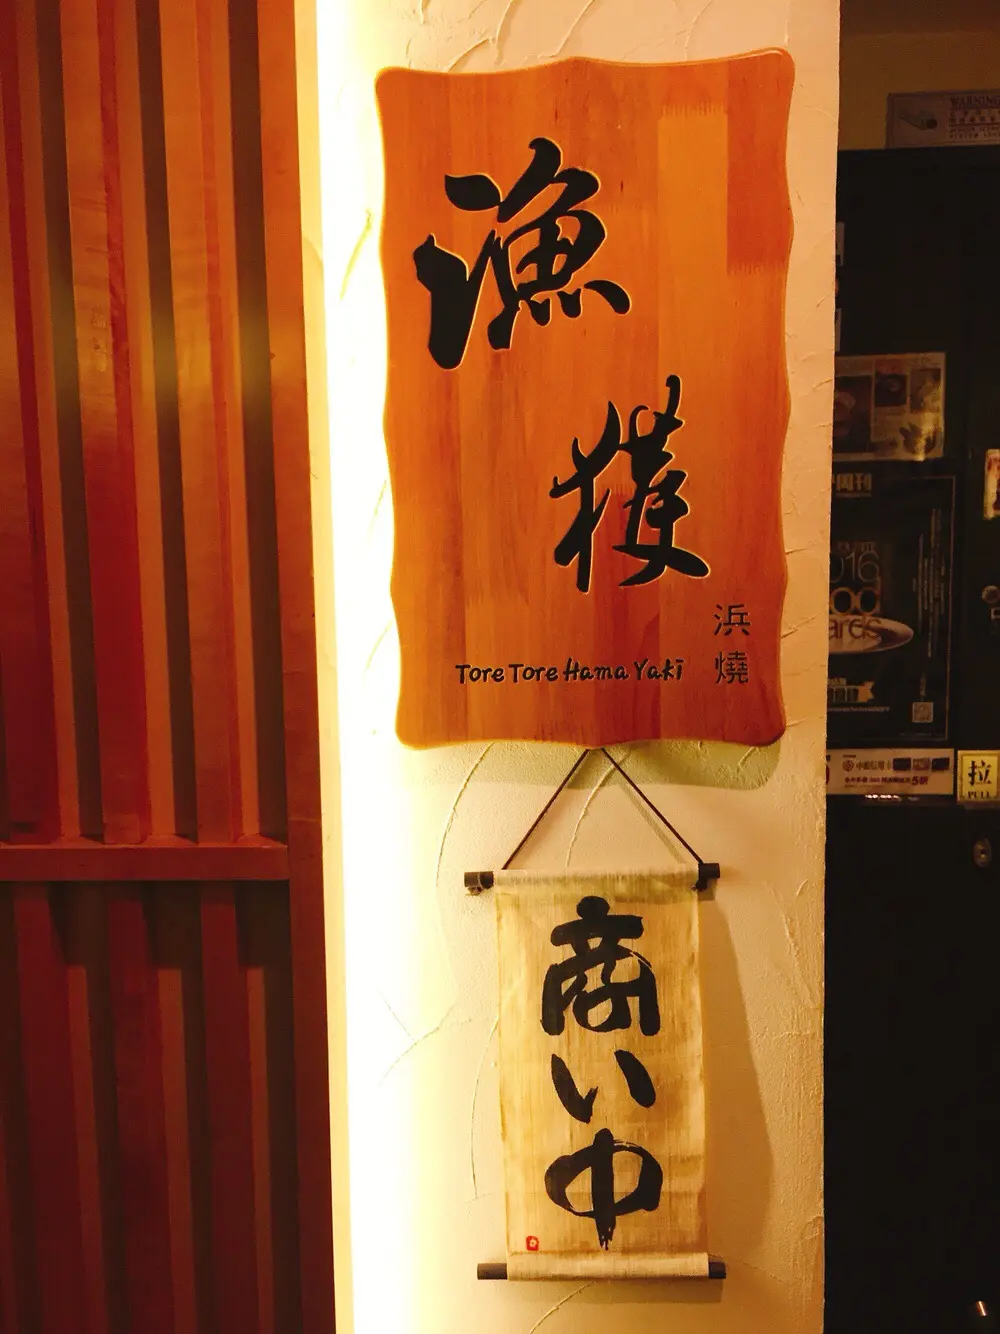 漁
獲
浜
燒
Tore Tore Hama Yaki
商
い
中
WARNING
2016
拉
PULL